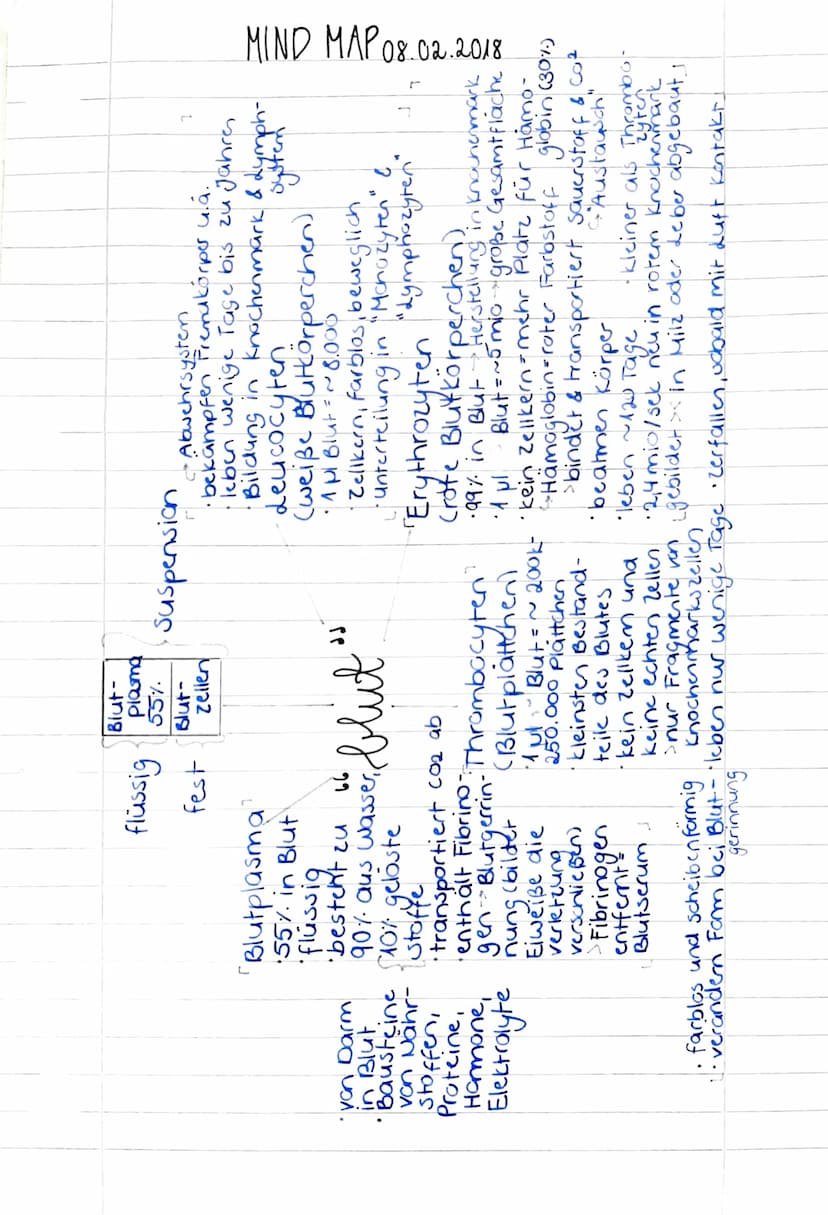 MIND MAP 08.02.2018
flüssig
fest
Blut-
plasma
55%
Blut-
zellen
Suspension
"Blut"
Blutplasma
· 55% in Blut
· flüssig
· besteht zu
90% aus Wasser,
10% gelöste
Stoffe
· transportiert CO2 ab
· enthält Fibrino-
gen → Blutgerrin-
nung (bildet
Eiweiße die
verletzung
verschließen)
> Fibrinogen
entfernt =
Blutserum
· von Darm
in Blut
· Bausteine
von Nähr-
stoffen,
Proteine,
Hormone,
Elektrolyte
↪ Abwehrsystem
· bekämpfen Fremdkörper u.ä.
· leben wenige Tage bis zu Jahren
· Bildung in Knochenmark & Lymph-
system
Leucocyten
(weiße Blutkörperchen)
· 1 µl Blut = ~8.000
· Zellkern, farblos, beweglich
· unterteilung in "Monozyten" &
"Lymphozyten"
Erythrozyten
(rote Blutkörperchen)
· 99% in Blut → Herstellung in Knochenmark
· 1 µl Blut = ~5 mio → große Gesamtfläche
· kein Zellkern = mehr Platz für Hämo-
globin (30%)
↪ Hämoglobin = roter Farbstoff
> bindet & transportiert Sauerstoff & CO2
↪ "Austausch"
· beatmen Körper
· leben ~120 Tage
· kleiner als Thrombo-
zyten
· 2,4 mio/sek neu in rotem Knochenmark
gebildet >< in Milz oder Leber abgebaut
Thrombocyten
(Blutplättchen)
· 1 µl Blut = ~200k-
250.000 Plättchen
· kleinsten Bestand-
teile des Blutes
· kein Zellkern und
keine echten Zellen
> nur Fragmente von
Knochenmarkszellen
· leben nur wenige Tage
· zerfallen, sobald mit Luft Kontakt
· farblos und scheibenförmig
· verändern Form bei Blut-
gerinnung